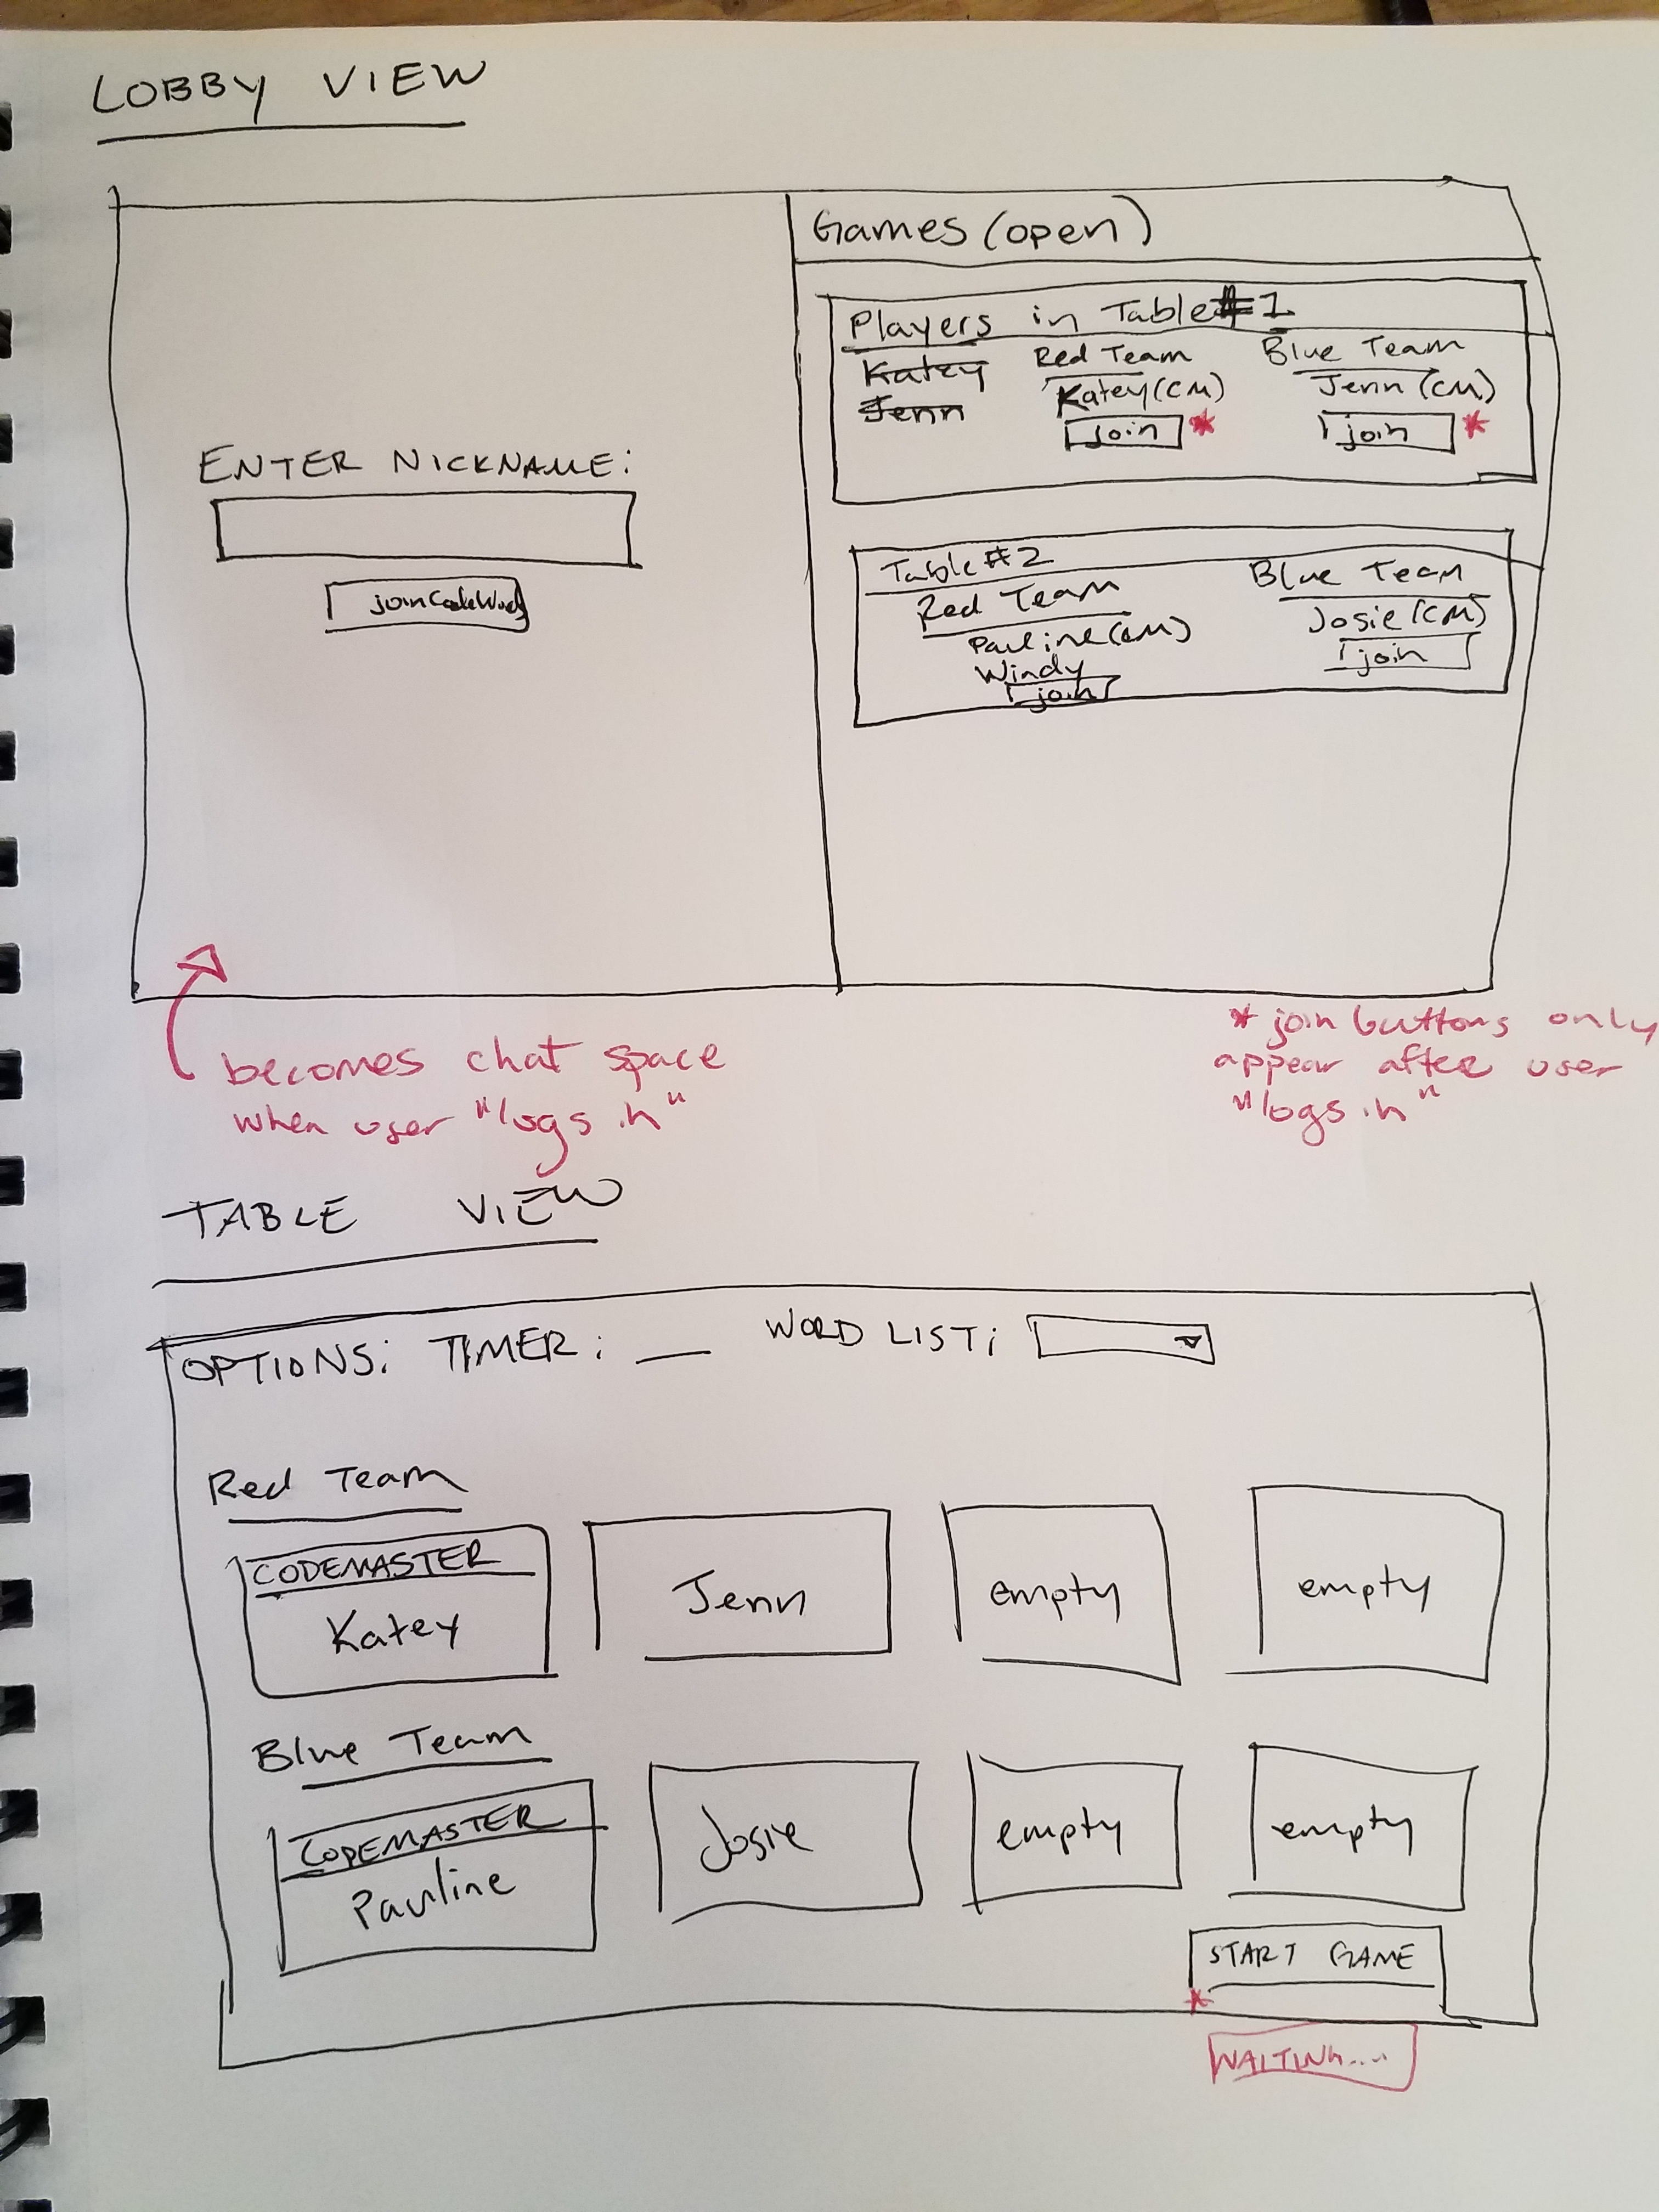 LOBBY VIEW
Games (open)
Players in Table #1
Katey
Jenn
Red Team
Katey (CM)
join *
Blue Team
Jenn (CM)
join *
ENTER NICKNAME:
join CodeWords
Table #2
Red Team
Pauline (CM)
Windy
join
Blue Team
Josie (CM)
join
becomes chat space
when user "logs in"
* join buttons only
appear after user
"logs in"
TABLE VIEW
OPTIONS: TIMER: __ WORD LIST:
Red Team
CODEMASTER
Katey
Jenn
empty
empty
Blue Team
CODEMASTER
Pauline
Josie
empty
empty
START GAME
*
WAITING...